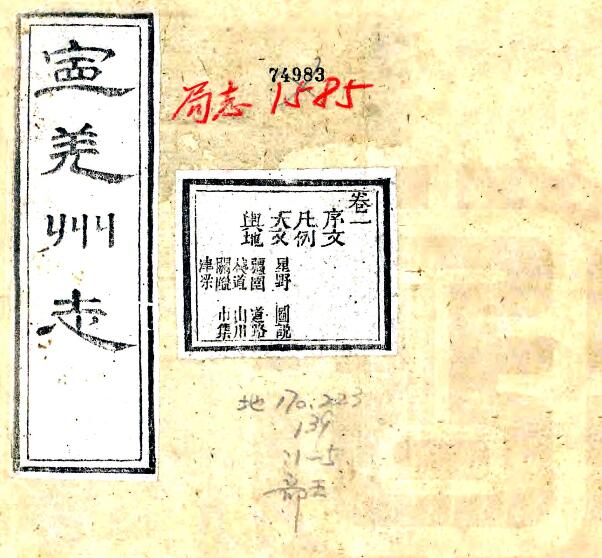 寍羌州志
74983
局志 1585
卷一
序文
凡例
天文 星野 圖說
輿地 疆圉 道路
棧道 山川
關隘 市集
津梁
地 170.223
139
:1-5